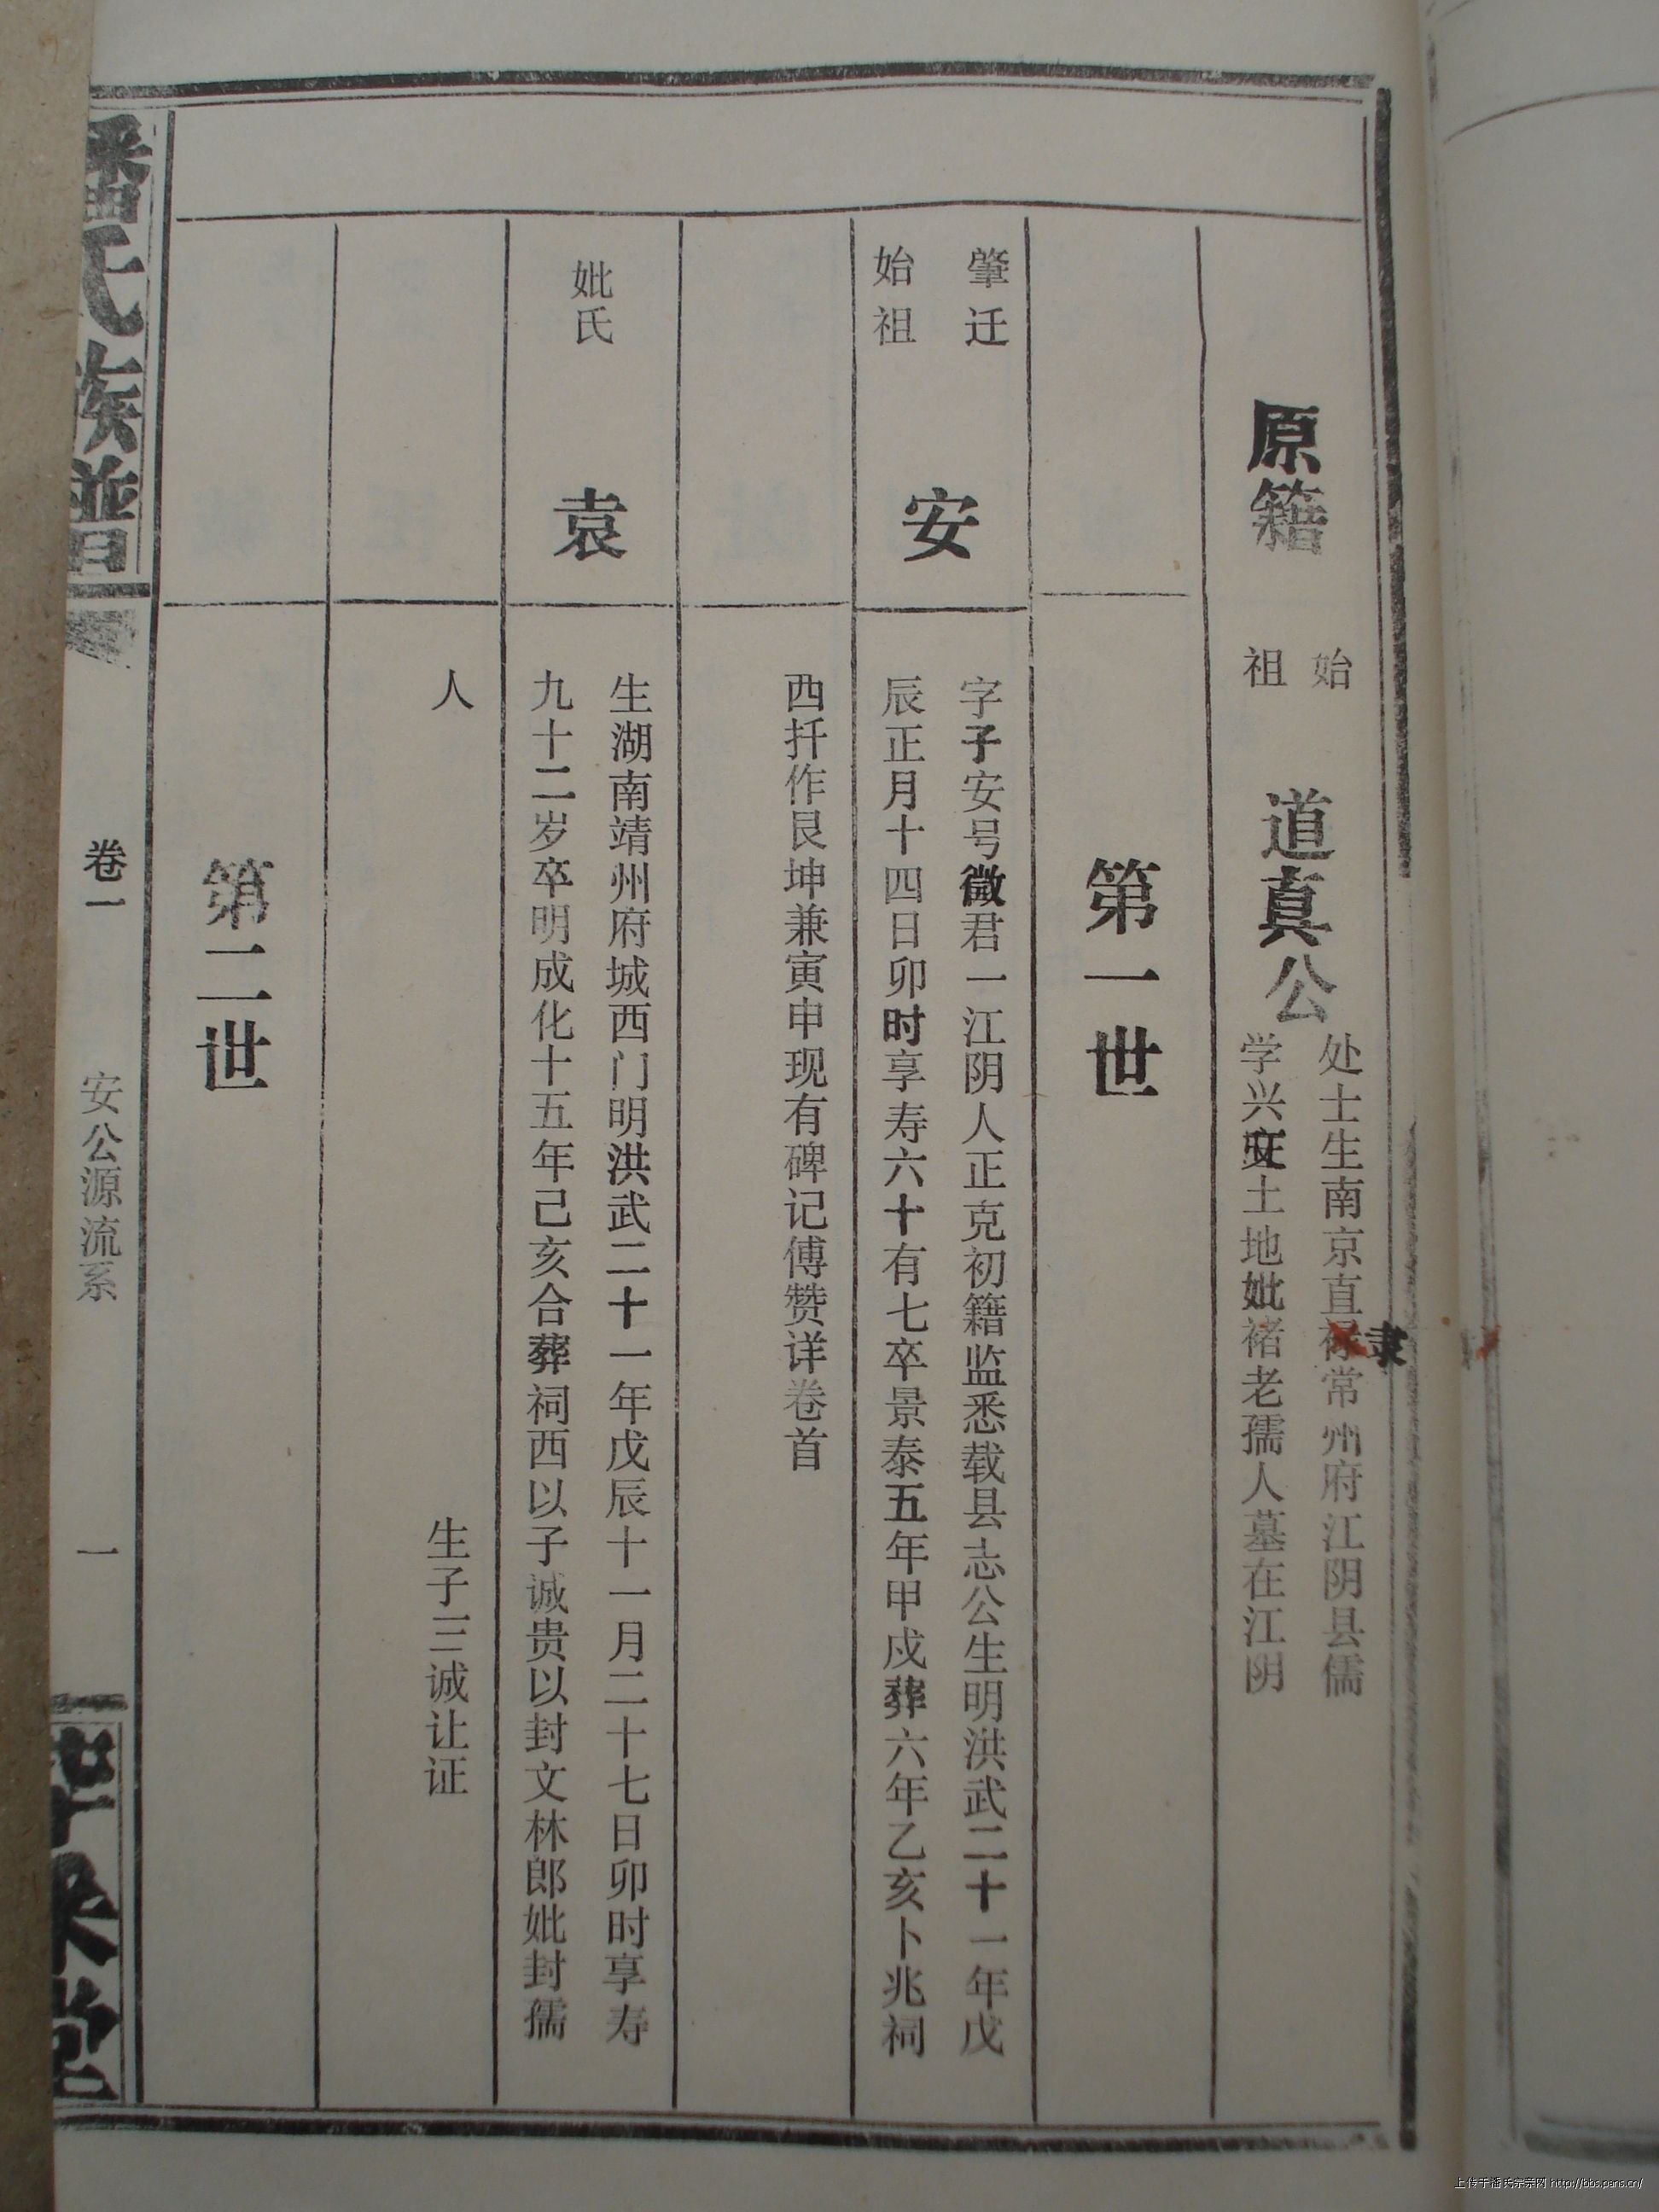 原籍
始
祖
道真公
处士生南京直禄常州府江阴县儒
隶
学兴土地妣褚老孺人墓在江阴
第一世
肇迁
始祖
安
字子安号微君一江阴人正克初籍监悉载县志公生明洪武二十一年戊
辰正月十四日卯时享寿六十有七卒景泰五年甲戍葬六年乙亥卜兆祠
西扦作艮坤兼寅申现有碑记傅赞详卷首
妣氏
袁
生湖南靖州府城西门明洪武二十一年戊辰十一月二十七日卯时享寿
九十二岁卒明成化十五年己亥合葬祠西以子诚贵以封文林郎妣封孺
人
生子三诚让证
第二世
潘氏族谱
卷一
安公源流系
一
堂
上传于潘氏宗亲网 http://bbs.pans.cn/